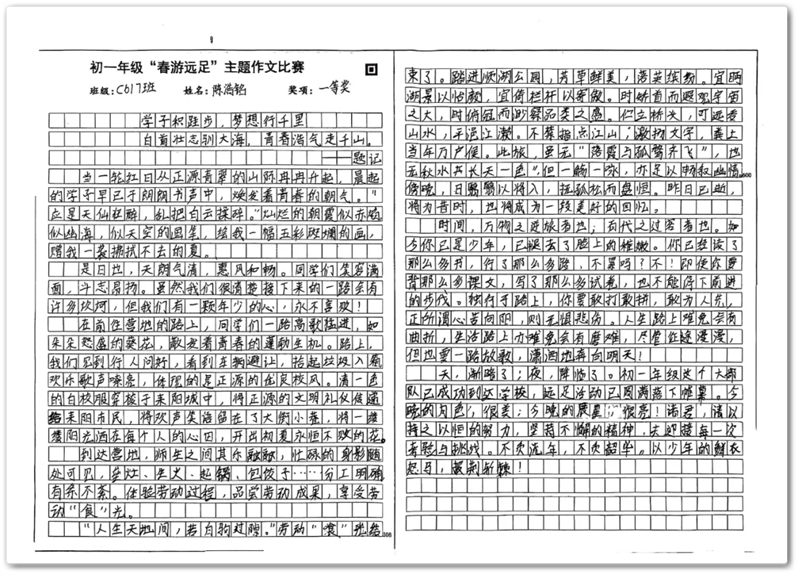 初一年级“春游远足”主题作文比赛
班级：C617班 姓名：陈浩铭 奖项：一等奖
学子积跬步，梦想行千里
白首壮志驯大海，青春浩气走千山。
——题记
当一轮红日从正源青翠的山际冉冉升起，晨起
的学子早已于朗朗书声中，焕发着青春的朝气。“
应是天仙狂醉，乱把白云揉碎。”灿烂的朝霞似赤焰
似幽海，似天空的画笔，绘我一幅五彩斑斓的画，
赠我一袭拂拭不去的夏。
是日也，天朗气清，惠风和畅。同学们笑容满
面，斗志昂扬。虽然我们很清楚接下来的一路会有
许多坎坷，但我们有一颗年少的心，永不言败！
在前往营地的路上，同学们一路高歌猛进，如
朵朵怒盛的葵花，散发着青春的蓬勃生机。路上，
我们见到行人问好，看到车辆避让，拾起垃圾入箱
欢乐歌声嘹亮，体现的是正源的优良校风。清一色
的白校服穿梭于耒阳城中，将正源的文明礼仪传递
给耒阳市民，将欢声笑语留在了大街小巷，将一缕
缕阳光洒在每个人的心田，开出初夏永恒不败的花。
到达营地，师生之间其乐融融，忙碌的身影随
处可见，垒灶、生火、起锅、包饺子……分工明确
有条不紊。体验劳动过程，品尝劳动成果，享受劳
动“食”光。
“人生天地间，若白驹过隙。”劳动“食”光结
束了。踏进顺湖公园，芳草鲜美，落英缤纷。宜眺
湖景以怡颜，宜倚栏杆以寄傲。时矫首而遐观宇宙
之大，时俯冠而
品类之盛。伫立桥火，可迎青
山水，平沿江濑。不禁指点江山，激扬文字，粪土
当年万户侯。此旅，虽无“落霞与孤鹜齐飞”，也
无秋水共长天一色”但一畅一咏，亦足以畅叙幽情
傍晚，日翳翳以将入，抚孤松而盘桓。昨日已逝，
将为昔时，也将成为一段美好的回忆。
时间，万物之逆旅者也；百代之过客者也。如
今你已是少年，已褪去了脸上的稚嫩。你已经读了
那么多书，行了那么多路，不累吗？不！即使你要
背那么多课文，写了那么多试卷，也不能停下前进
的步伐。初行于路上，你要敢打敢拼，敢为人先，
正所谓心若向阳，则无惧悲伤。人生路上难免会有
曲折，生活路上亦难免会有磨难，尽管征途漫漫，
但也要一路放歌，潇洒地奔向明天！
天，渐暗了；夜，降临了。初一年级这个大部
队已成功到达学校，远足活动已圆满落下帷幕。今
晚的月色，很美；今晚的晨星，很亮！诸君，请以
持之以恒的努力，坚持不懈的精神，去迎接每一次
考验与挑战。不负流年，不负韶华。以少年的鲜衣
怒马，